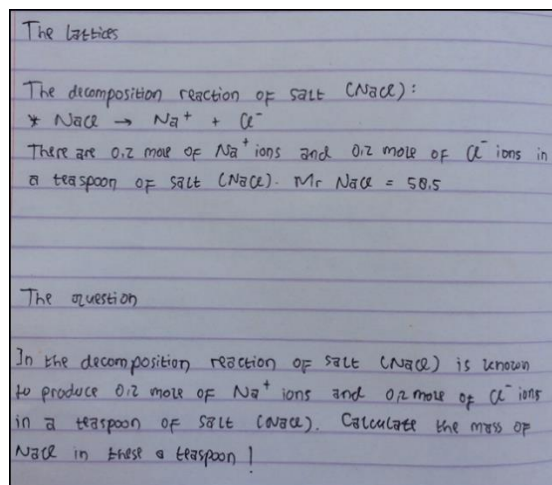 The lattices
The decomposition reaction of salt (NaCl):
* NaCl → Na⁺ + Cl⁻
There are 0,2 mole of Na⁺ ions and 0,2 mole of Cl⁻ ions in
a teaspoon of salt (NaCl). Mr NaCl = 58,5
The question
In the decomposition reaction of salt (NaCl) is known
to produce 0,2 mole of Na⁺ ions and 0,2 mole of Cl⁻ ions
in a teaspoon of salt (NaCl). Calculate the mass of
NaCl in these a teaspoon!